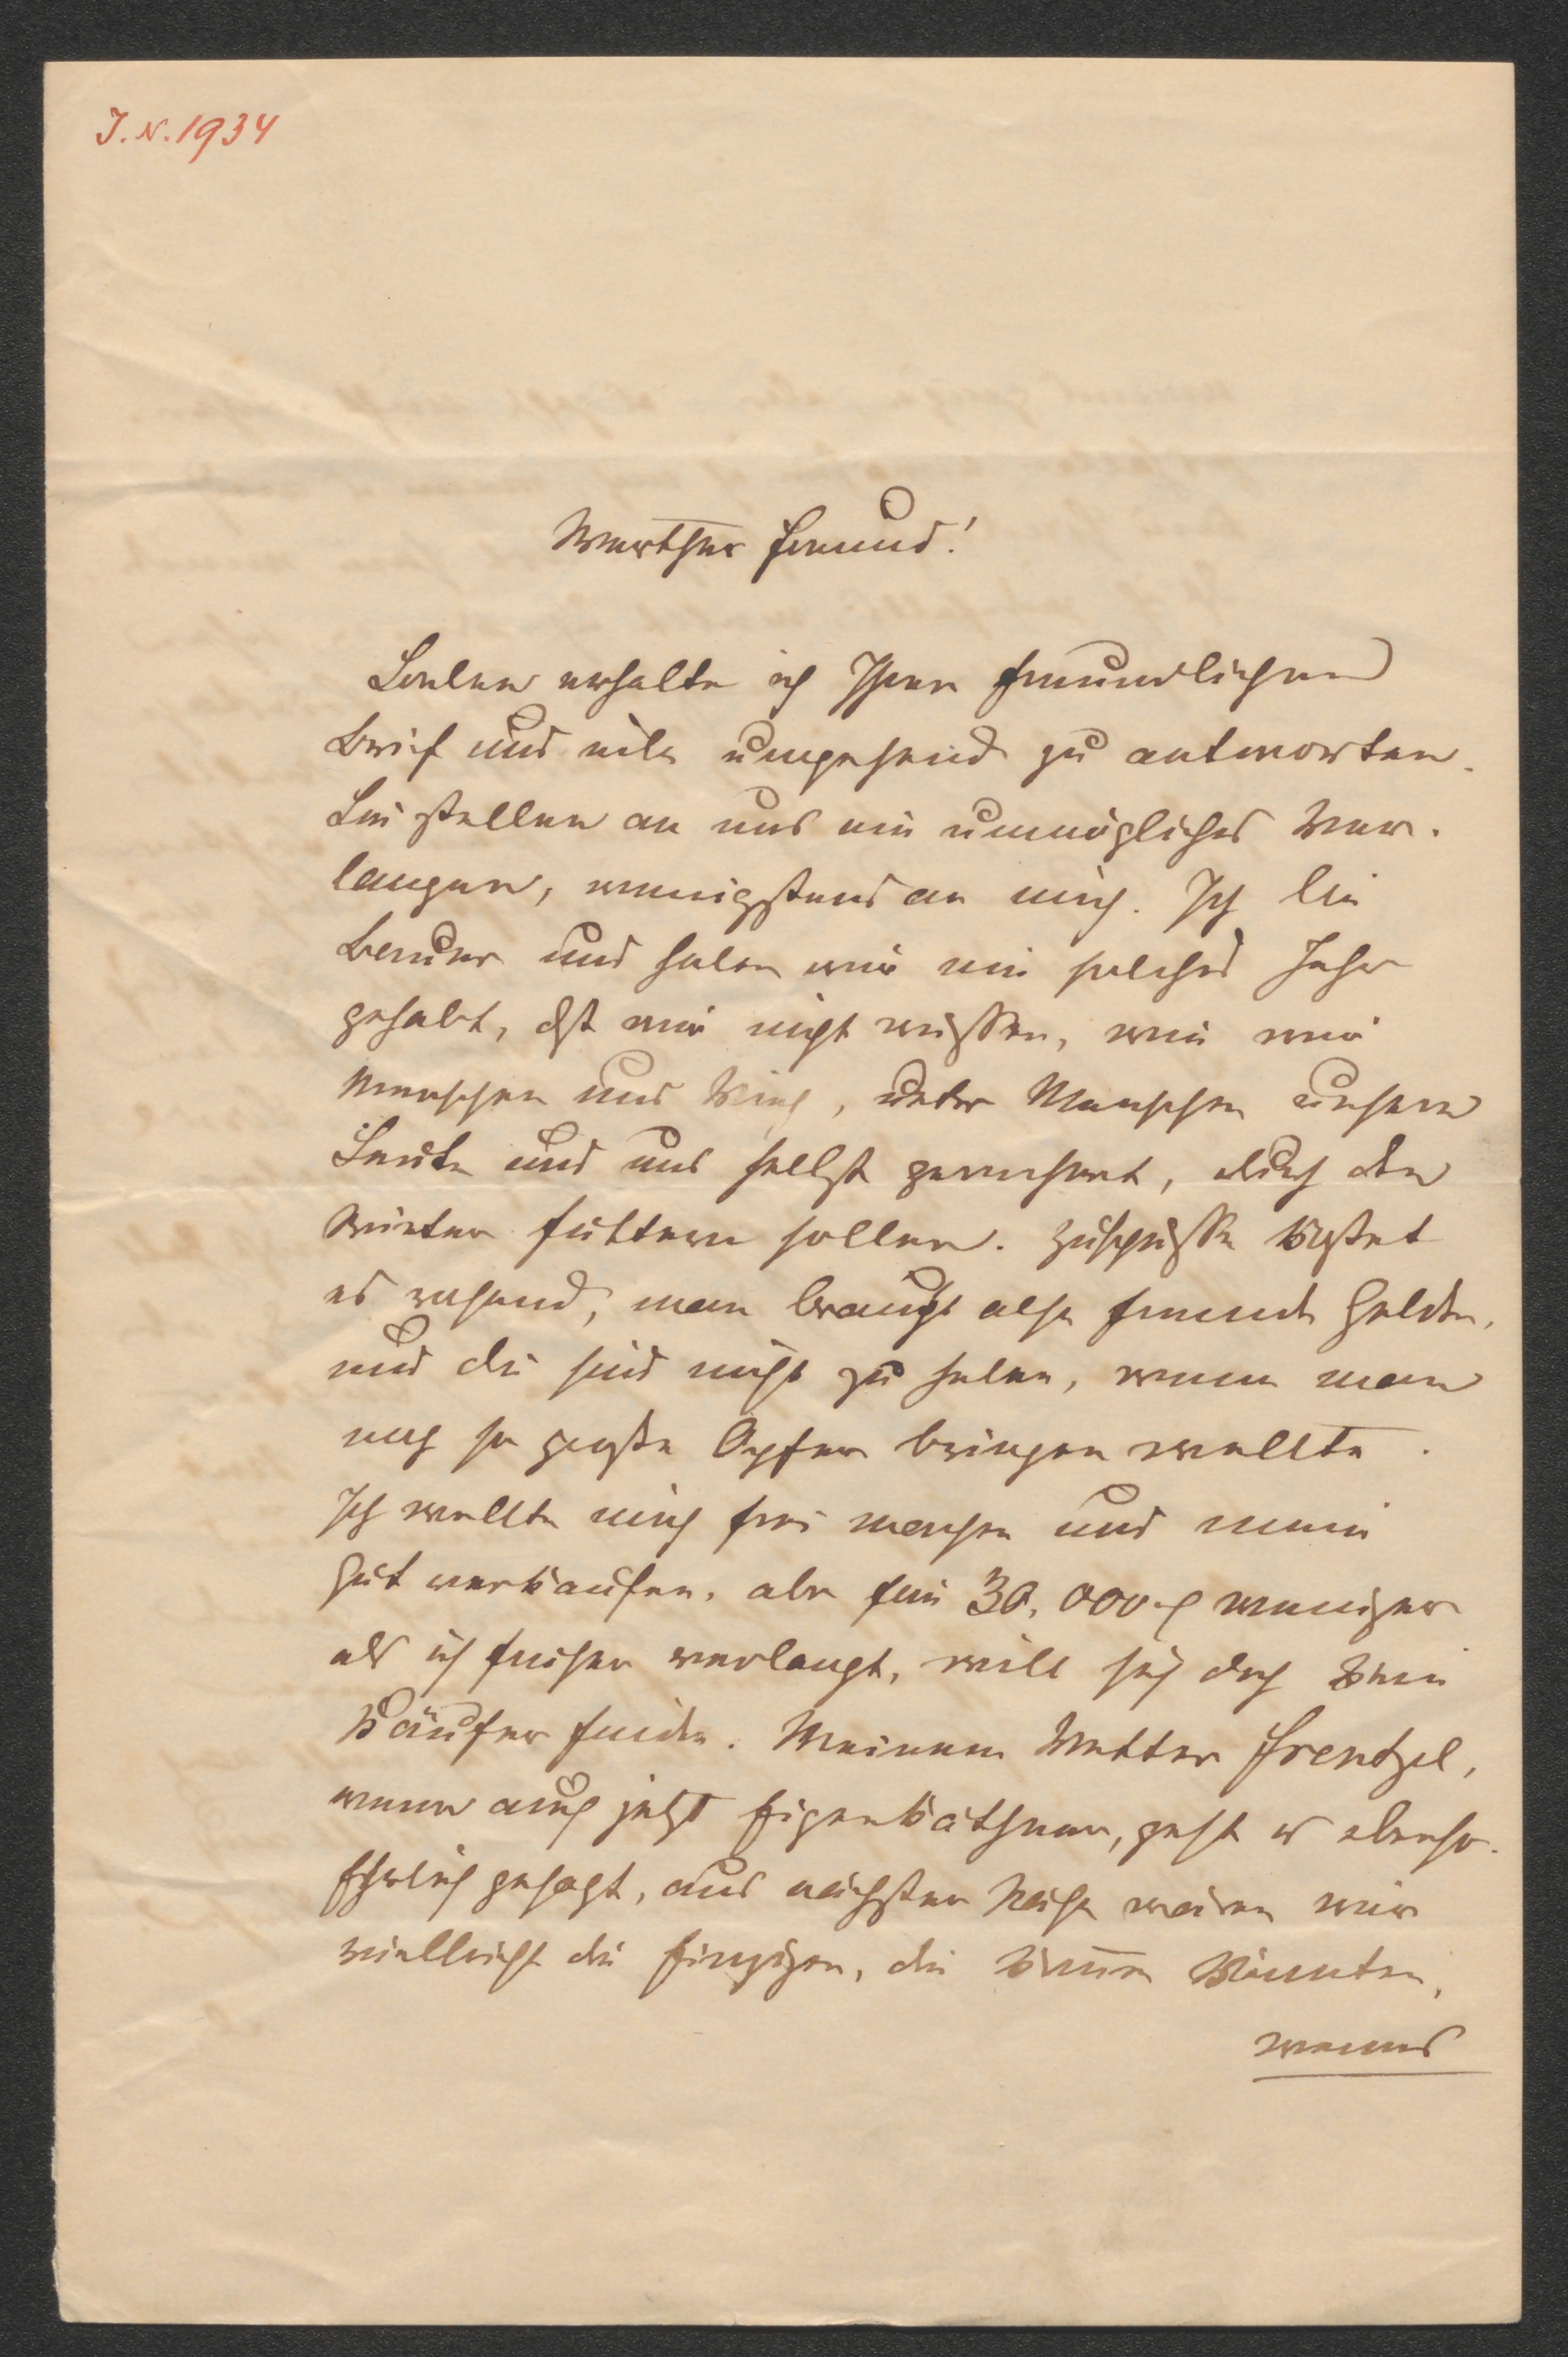 J. N. 1934
Werther Freund!
Soeben erhalte ich Ihren freundlichen
Brief und eile umgehend zu antworten.
Sie stellen an uns ein unmögliches Ver-
langen, wenigstens an mich. Ich bin
Bauer und haben wir ein solches Jahr
gehabt, dß wir nicht wissen, wie wir
Menschen und Vieh, unter Menschen unsere
Leute und uns selbst gerechnet, durch den
Winter futtern sollen. Zuschüsse kostet
es rasend, man braucht also fremde Gelder,
und die sind nicht zu haben, wenn man
noch so große Opfer bringen wollte.
Ich wollte mich frei machen und mein
Gut verkaufen, aber für 30,000 weniger
als ich früher verlangt, will sich doch kein
Käufer finden. Meinem Vetter Frentzel,
wenn auch jetzt geht es ebenso.
Ehrlich gesagt, aus nächster Nähe wären wir
vielleicht die Einzigen, die könnten,
wenns